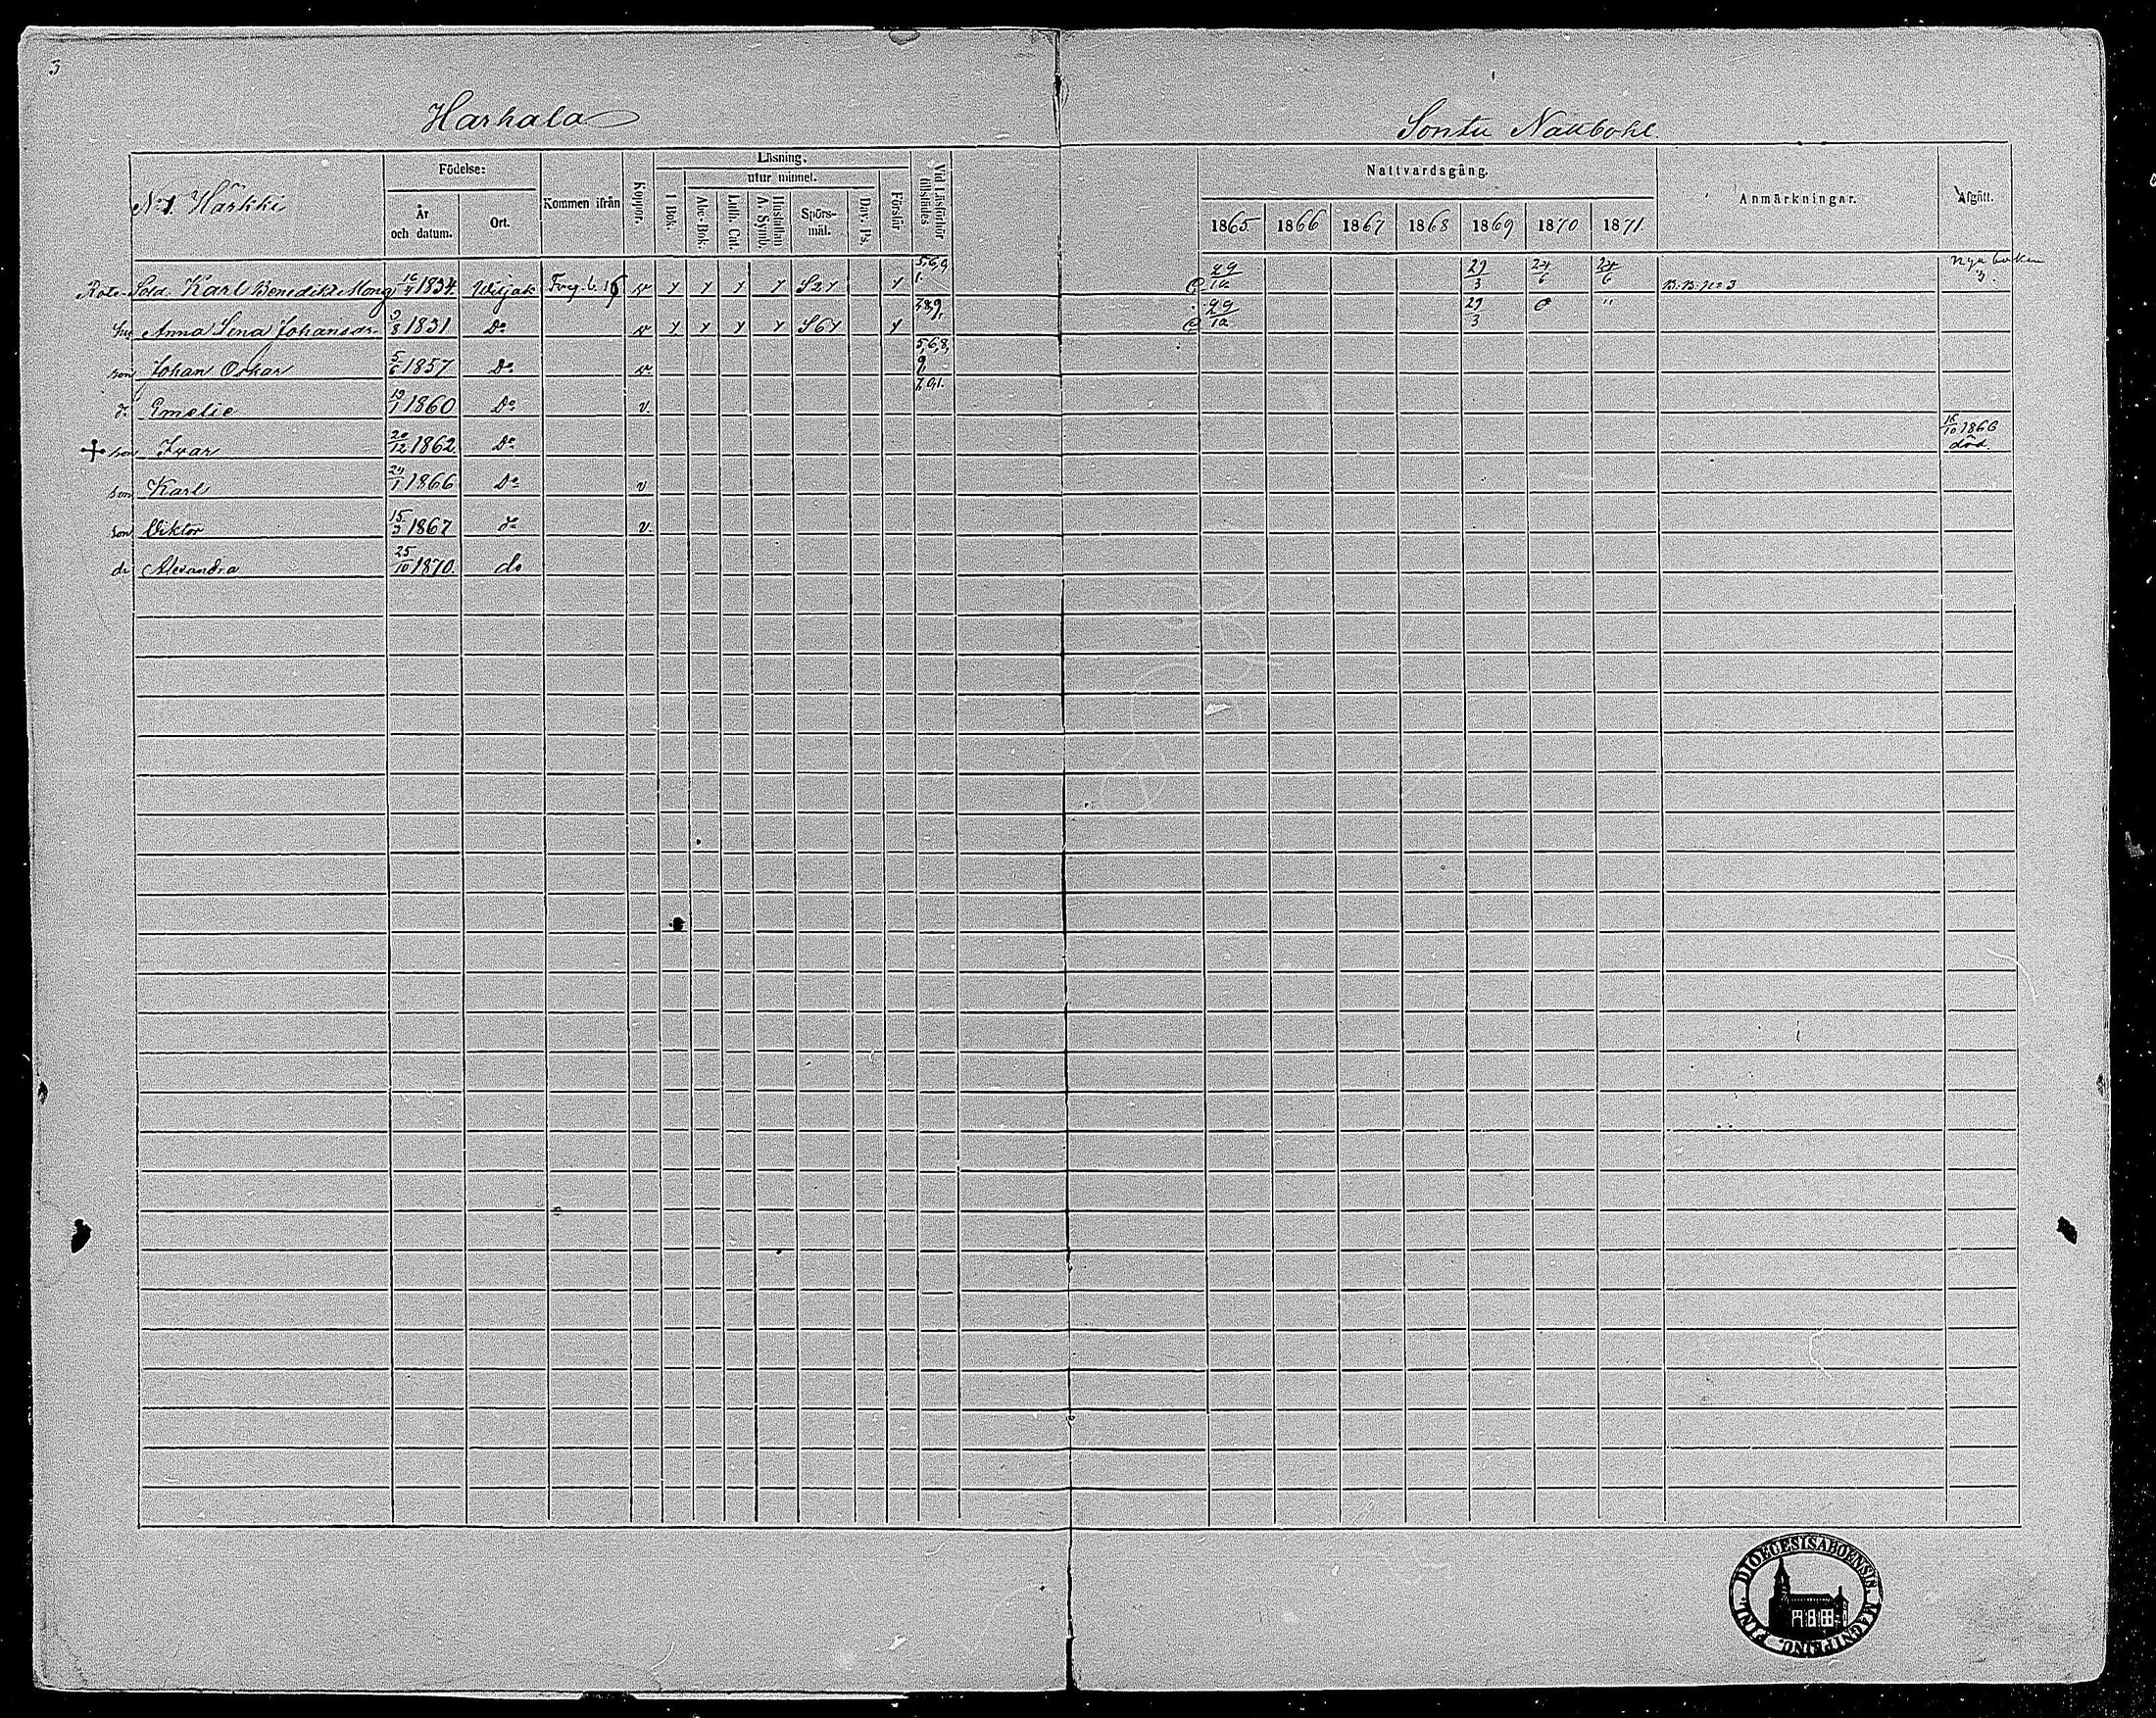 3
Harhala
Sontu Nattbohl.
No 1. Härkki
Födelse:
År och datum.
Ort.
Kommen ifrån
Koppor.
Läsning.
I Bok.
utur minnet.
Abc-Bok.
Luth. Cat.
Hustaflan A. Symb.
Spörs-mål.
Dav. Ps.
Förstår
Vid Läsförhör tillstädes
Nattvardsgång.
1865 1866 1867 1868 1869 1870 1871
Anmärkningar.
Afgått.
Rote-Sold. Karl Benedikt Mong 16/4 1834. v 5,6,9 1. 29/10 29/3 24/6 24/6 B.B. No 3 Nya boken 3.
hu Anna Lena Johansdr 9/8 1831 Do v 7,8,9, 29/10 29/3 "
son Johan Oskar 5/6 1857 Do v 5,6,8, 9
dr Emelie 19/1 1860 Do v. 7,9,1.
+ son Ivar 20/12 1862. Do 15/10 1866 död.
son Karl 24/1 1866 Do v
son Viktor 15/3 1867 do v.
dr Alexandra 25/10 1870 do
DIOECESIS ABOENSIS MAGNI PRINC. FINL.